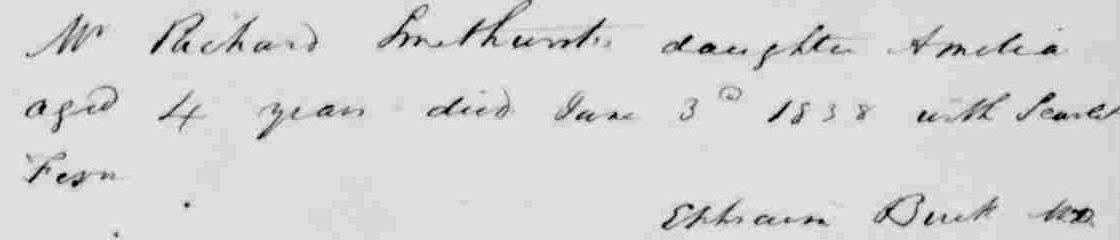 Mr Richard Smethursts daughter Amelia
aged 4 years died June 3d 1838 with Scarlet
Fever
Ephraim Buck MD.